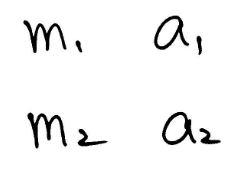 m₁ a₁
m₂ a₂